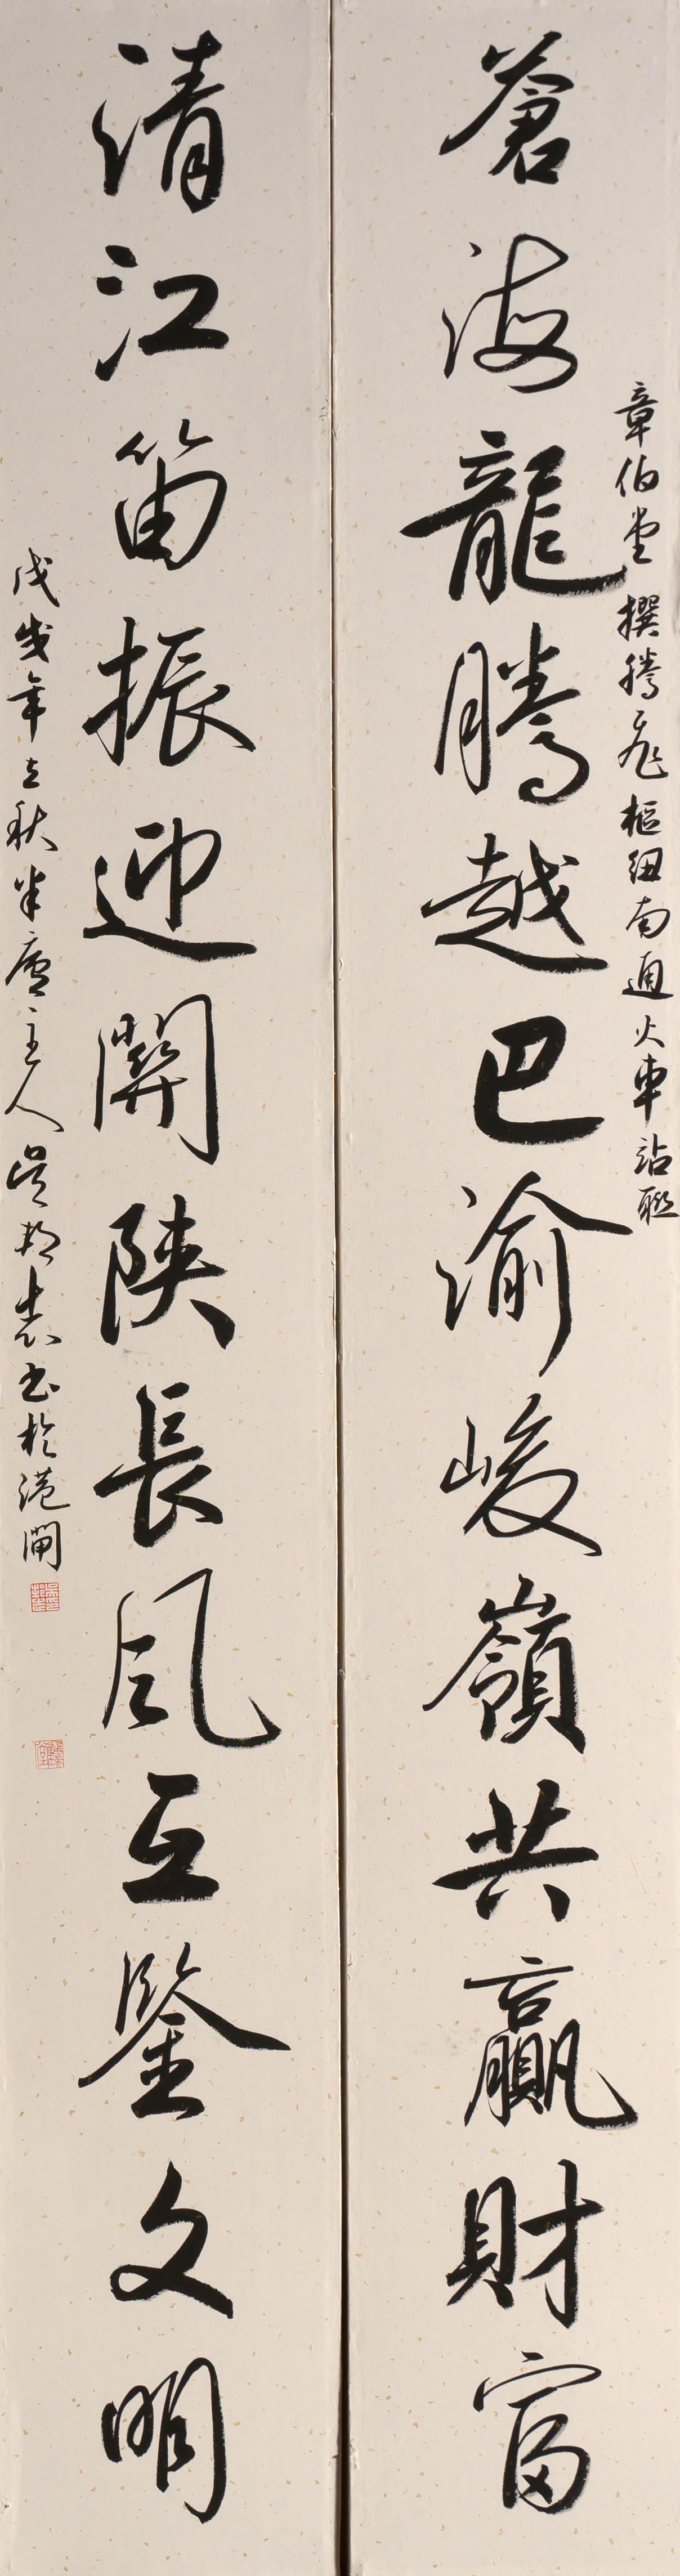 章伯堂撰騰飛樞紐南通火車站聯
蒼海龍騰越巴渝峻嶺共贏財富
清江笛振迎關陝長風互鑒文明
戊戌年立秋半廬主人吳邦書於港閘